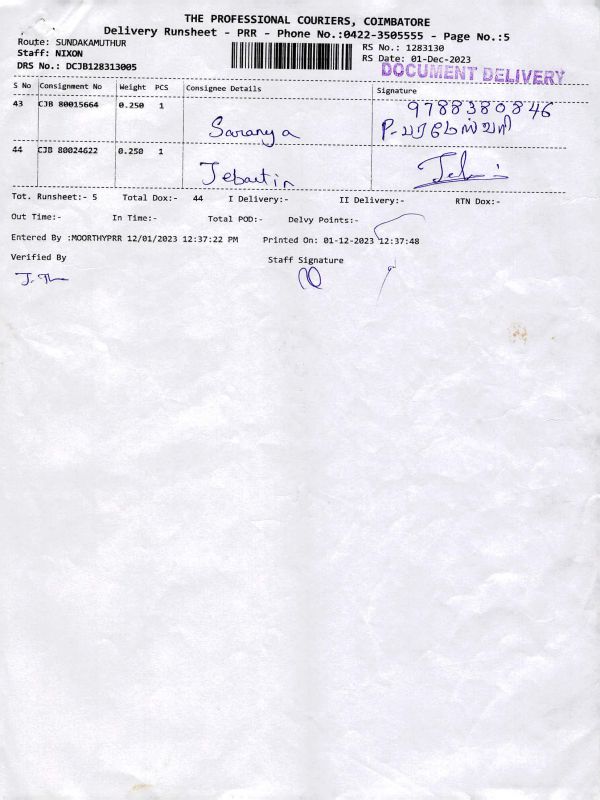 THE PROFESSIONAL COURIERS, COIMBATORE
Delivery Runsheet - PRR - Phone No.:0422-3505555 - Page No.:5
Route: SUNDAKAMUTHUR
RS No.: 1283130
Staff: NIXON
RS Date: 01-Dec-2023
DRS No.: DCJB128313005
DOCUMENT DELIVERY
S No Consignment No Weight PCS Consignee Details Signature
43 CJB 80015664 0.250 1 9788380846
Saranya P-பரமேஸ்வரி
44 CJB 80024622 0.250 1
Jebastin
Tot. Runsheet:- 5 Total Dox:- 44 I Delivery:- II Delivery:- RTN Dox:-
Out Time:- In Time:- Total POD:- Delvy Points:-
Entered By :MOORTHYPRR 12/01/2023 12:37:22 PM Printed On: 01-12-2023 12:37:48
Verified By Staff Signature